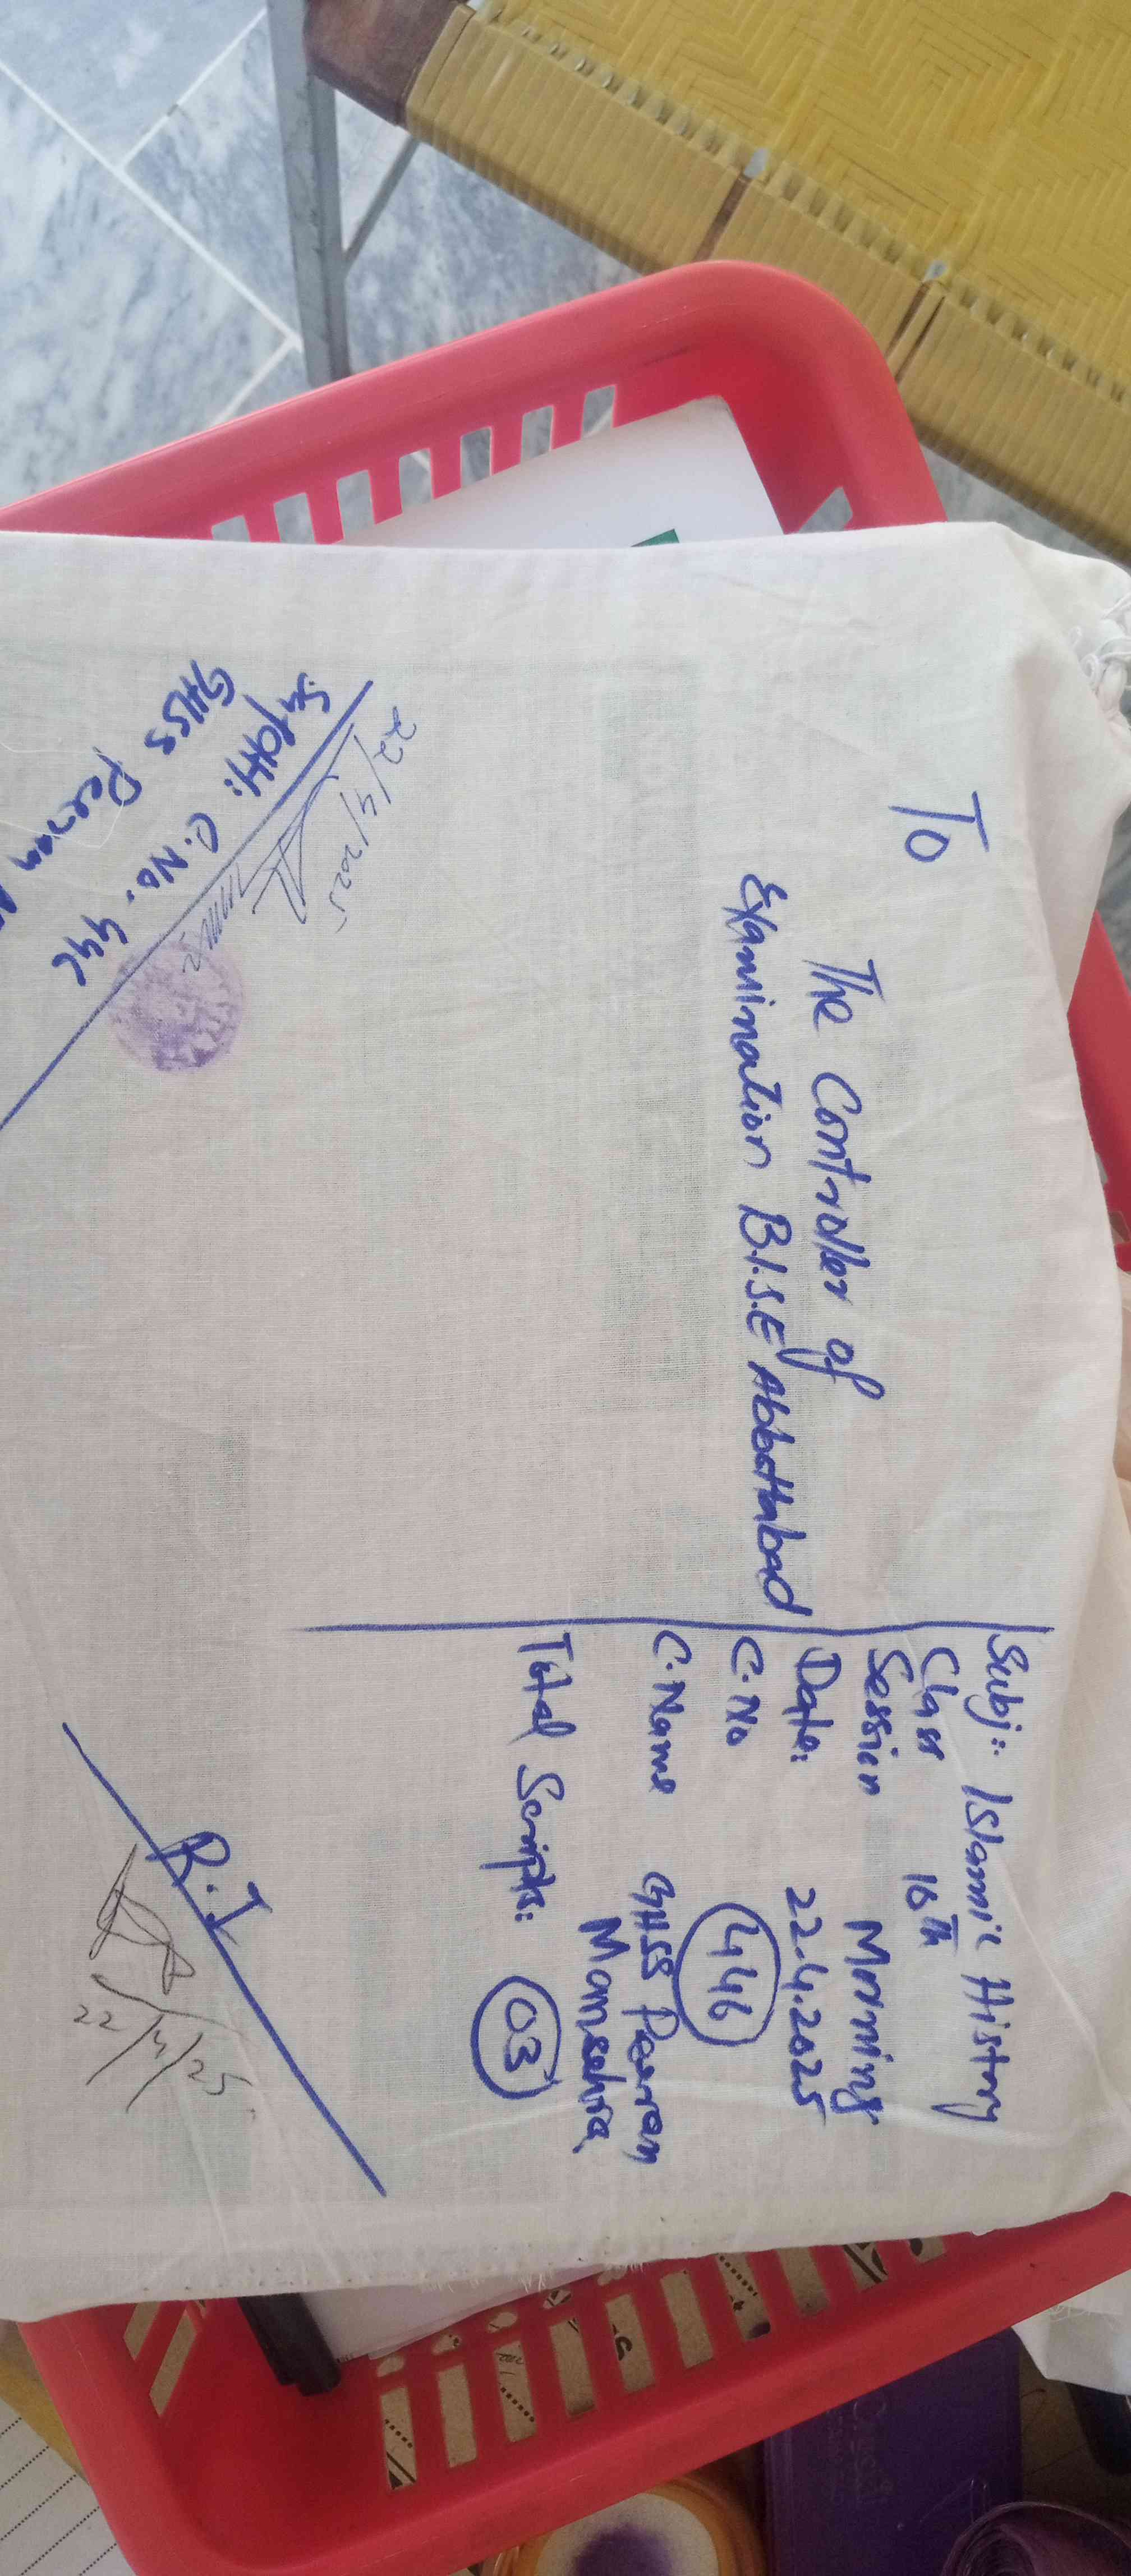 To
The Controller of
Examination B.I.S.E Abbottabad
Subj:- Islamic History
Class 10th
Session Morning
Date: 22.4.2025
C.No 446
C.Name GHSS Peeran
Mansehra
Total Scripts: 03
22/4/2025
Supdtt: C.No. 446
GHSS Peeran
R.I
22/4/25